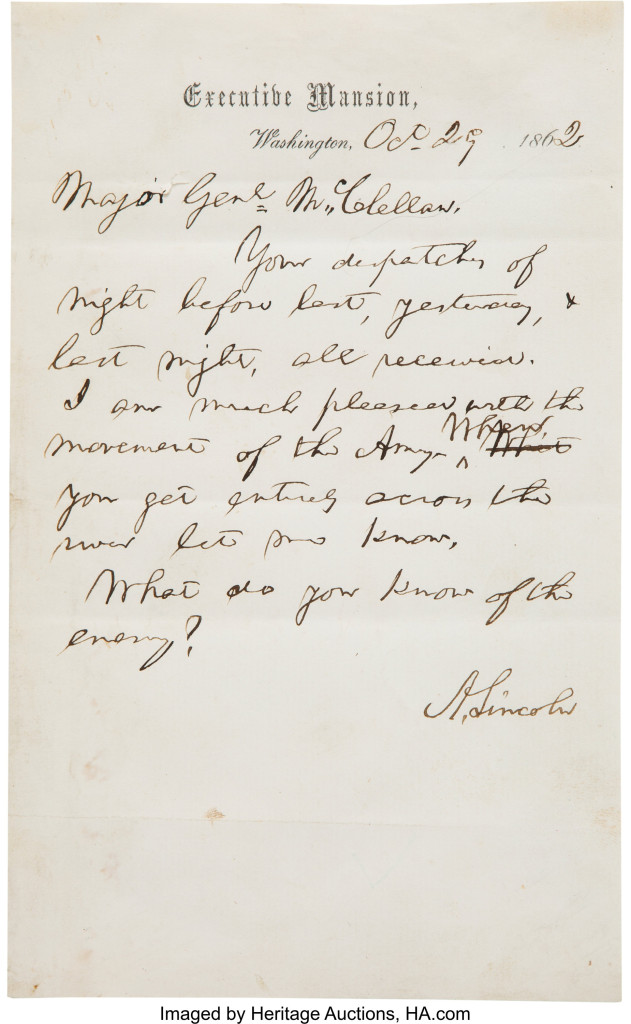 Executive Mansion,
Washington, Oct 29 1862
Major Genl McClellan.
Your despatches of
night before last, yesterday, &
last night, all received.
I am much pleased with the
movement of the Army. When What
you get entirely across the
river let me know.
What do you know of the
enemy?
A. Lincoln
Imaged by Heritage Auctions, HA.com